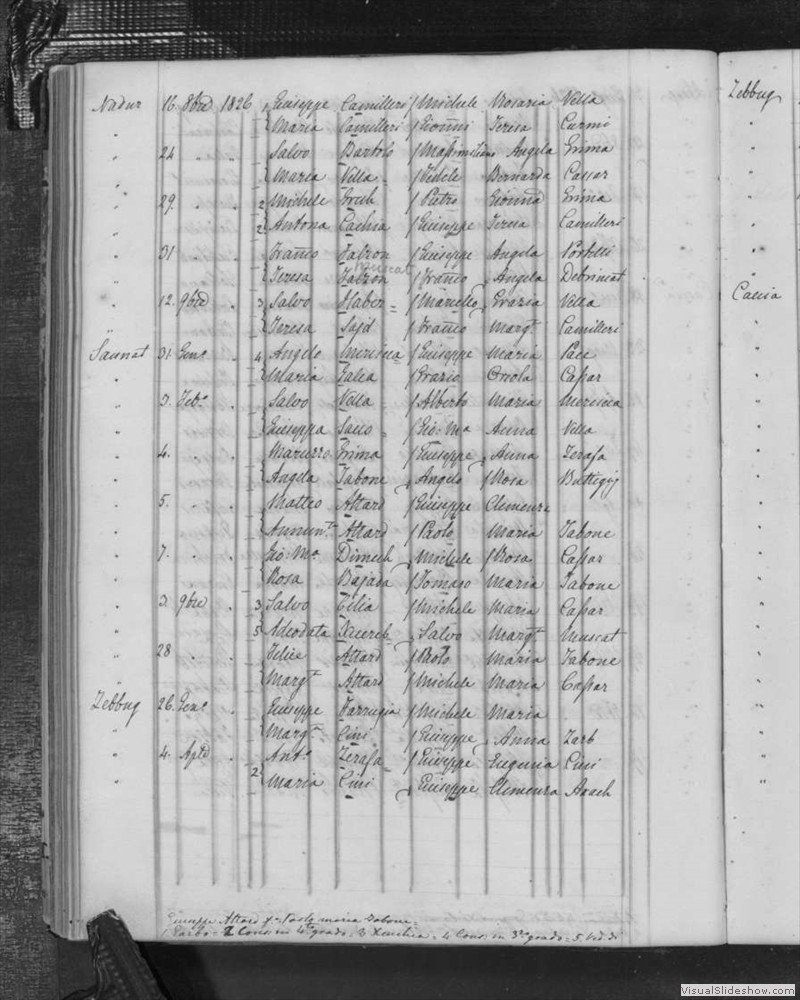 Nadur 16. 8bre 1826 Giuseppe Camilleri / Michele Rosaria Vella
" Maria Camilleri / Gionni Teresa Curmi
" 24 " " Salvo Bartolo / Massimiliano Angela Erima
" Maria Vella / Fidele Bernarda Cassar
" 29. " . 2 Michele Grech / Pietro Gionna Erima
" 2 Antona Cachia / Giuseppe Teresa Camilleri
" 31 . . Franco Falzon / Giuseppe Angela Portelli
Muscat
" Teresa Falzon / Franco Angela Debrincat
" 12. 9bre . 3 Salvo Haber / Marcello Grazia Vella
" Teresa Said / Franco Margta Camilleri
Sannat 31 Geno . 4 Angelo Mercieca / Giuseppe Maria Pace
" Maria Galea / Grazio Orsola Cassar
" 3. Febo . Salvo Vella / Alberto Maria Mercieca
" Giuseppa / Gio: Ma Anna Vella
" 4. . . Maruzzo Erima / Giuseppe Anna Zerafa
" Angela Tabone Angelo / Rosa Buttegig
" 5. . . Matteo Attard / Giuseppe Clemenza
" Annunta Attard / Paolo Maria Tabone
" 7. . . Gio: Ma Dimech Michele / Rosa Cassar
" Rosa Bajada / Tomaso Maria Tabone
" 3. 9bre . 3 Salvo Celia / Michele Maria Cassar
" 5 Adeodata Xuereb Salvo Margta Muscat
" 28 . . Felice Attard / Paolo Maria Tabone
" Margta Attard / Michele Maria Cassar
Zebbug 26. Geno . Giuseppe Farrugia / Michele Maria
" Margta Cini / Giuseppe Anna Zarb
" 4. Aple . Anto Zerafa / Giuseppe Eugenia Cini
" 2 Maria Cini Giuseppe Clemenza Axach
Giuseppe Attard Paolo Maria Tabone
2 Cons: in 4to grado = 3 = 4 Cons: in 3zo grado = 5,
Zebbug
Caccia
VisualSlideshow.com